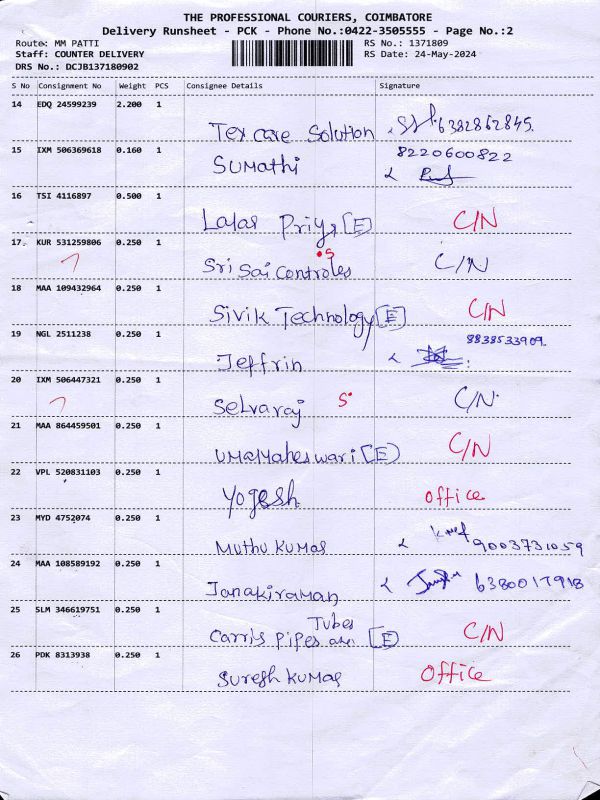 THE PROFESSIONAL COURIERS, COIMBATORE
Delivery Runsheet - PCK - Phone No.:0422-3505555 - Page No.:2
Route: MM PATTI RS No.: 1371809
Staff: COUNTER DELIVERY RS Date: 24-May-2024
DRS No.: DCJB137180902
S No Consignment No Weight PCS Consignee Details Signature
14 EDQ 24599239 2.200 1
Tex care Solution 6382862845.
15 IXM 506369618 0.160 1 8220600822
Sumathi
16 TSI 4116897 0.500 1
Lalas Priya [E] C/N
17 KUR 531259806 0.250 1 S
Sri Sai Controles C/N
18 MAA 109432964 0.250 1
Sivik Technology [E] C/N
19 NGL 2511238 0.250 1 8838533909.
Jeffrin
20 IXM 506447321 0.250 1
Selvaraj S C/N.
21 MAA 864459501 0.250 1
UmaMaheswari [E] C/N
22 VPL 520831103 0.250 1
Yogesh Office
23 MYD 4752074 0.250 1
Muthu Kumar 9003731059
24 MAA 108589192 0.250 1
Janakiraman 6380017918
25 SLM 346619751 0.250 1 Tubes
Carris Pipes [E] C/N
26 PDK 8313938 0.250 1
Suresh Kumar Office